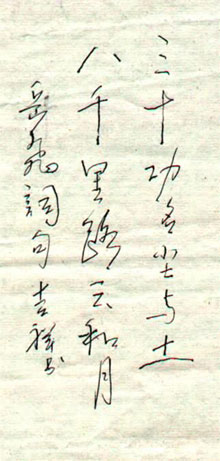 三十功名尘与土
八千里路云和月
岳飞词句 吉祥书